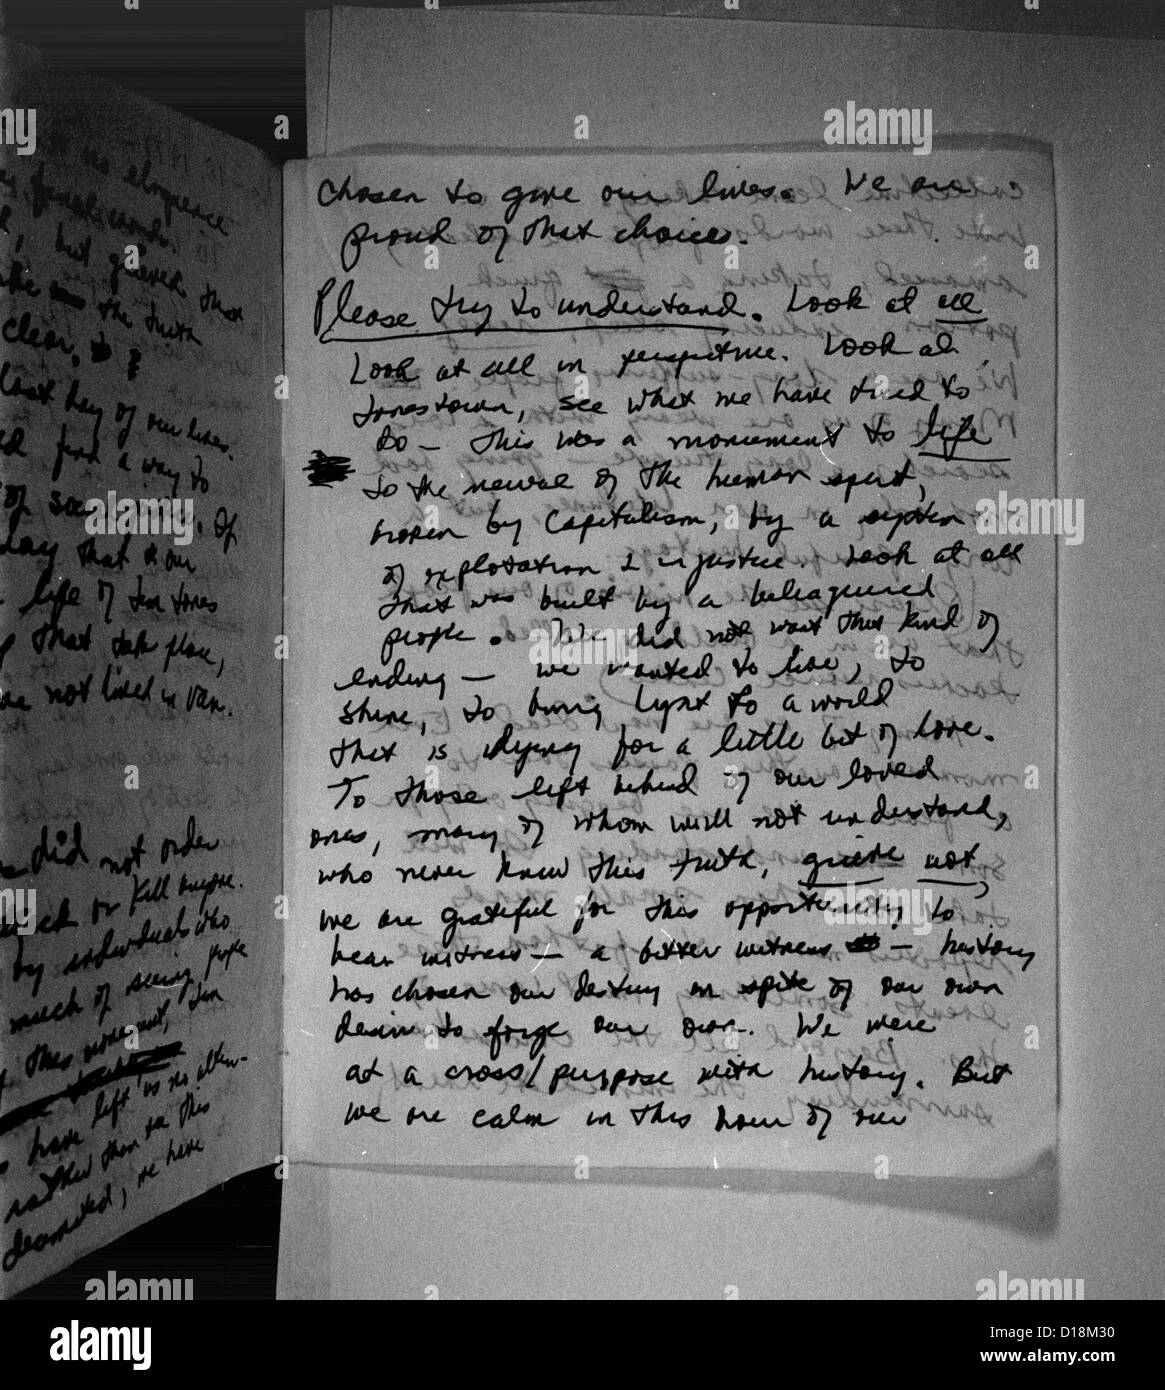 no eloquence
final words.
, but grieved that
the truth
clear,
last day of our lives.
find a way to
of
day that is our
life of Jim Jones
that take place,
not lived in vain.
did not order
or kill anyone.
by individuals who
much of seeing people
this movement, Jim
have left us no alter-
rather than see this
decimated, we have
chosen to give our lives. We are
proud of that choice.
Please try to understand. Look at all
Look at all in perspective. Look at
Jonestown, see what we have tried to
do – This was a monument to life
to the newal of the human spirit,
broken by capitalism, by a system
of explotation & injustice. Look at all
that was built by a beleagured
people. We did not want this kind of
ending – we wanted to live, to
shine, to bring light to a world
that is dying for a little bit of love.
To those left behind of our loved
ones, many of whom will not understand,
who never knew this truth, grieve not,
we are grateful for this opportunity to
bear witness – a bitter witness – history
has chosen our destiny in spite of our own
desire to forge our own. We were
at a cross/purpose with history. But
we are calm in this hour of our
alamy
Image ID: D18M30
www.alamy.com